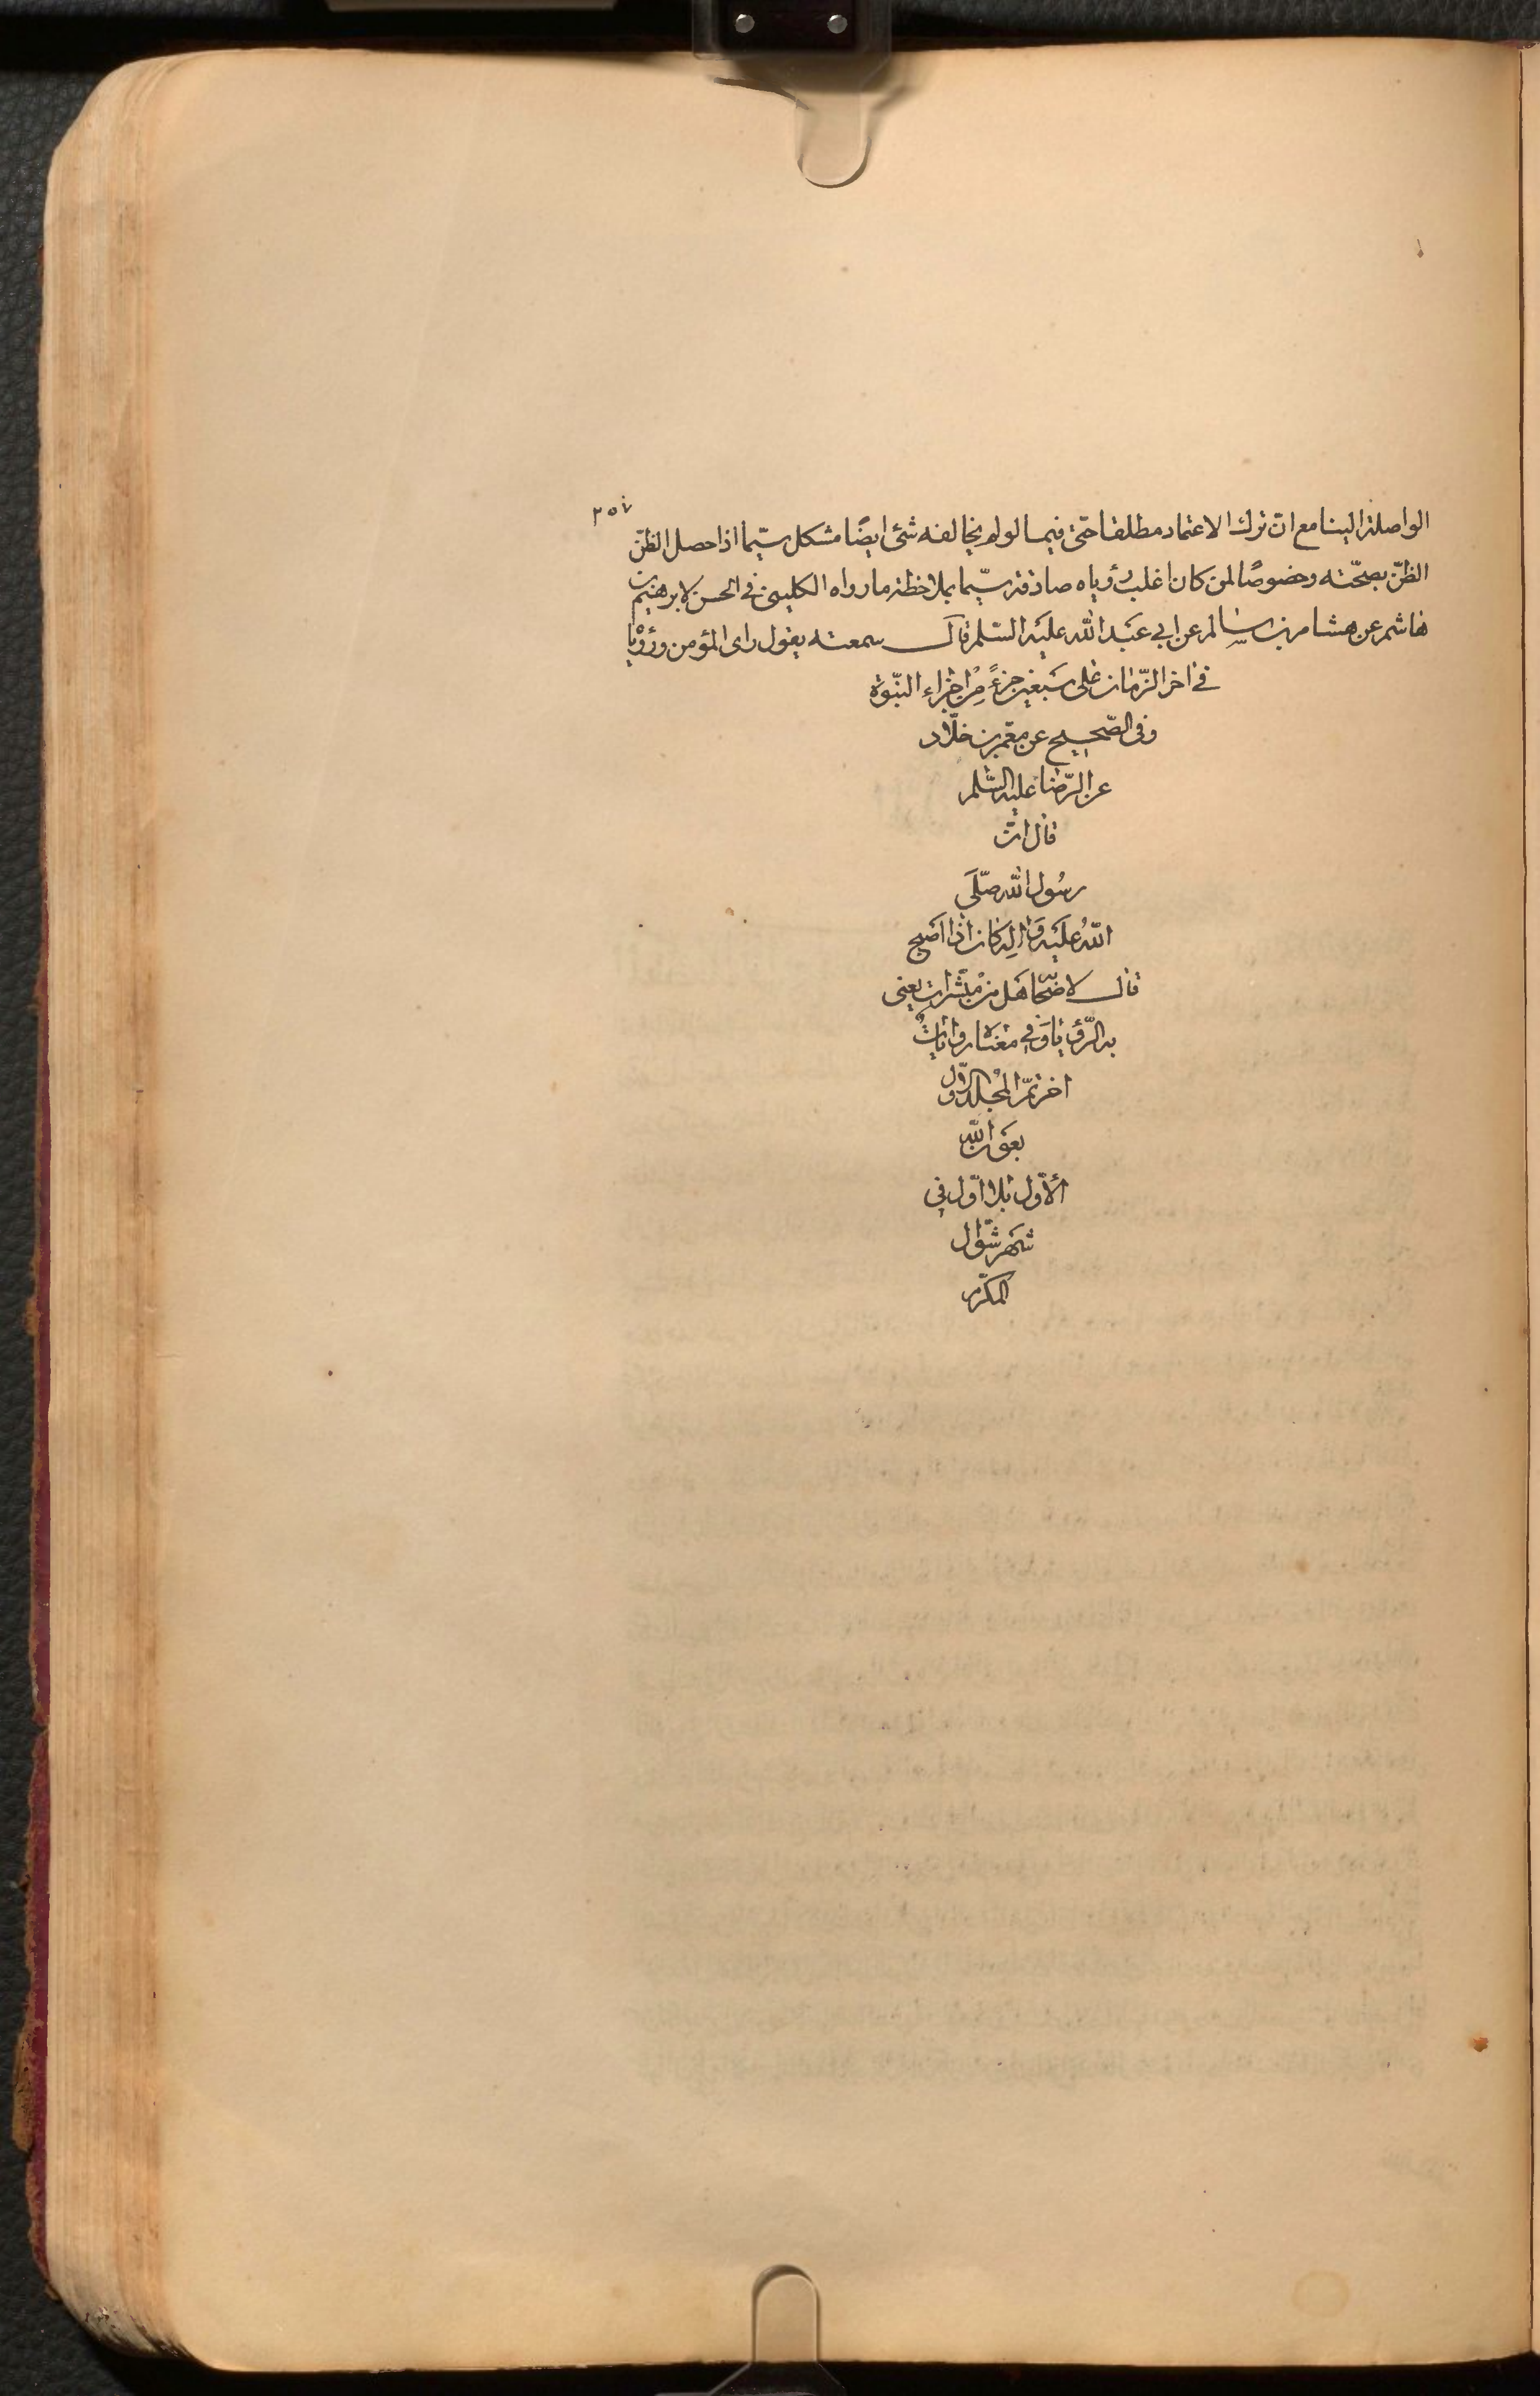 ٢٥٧
الواصلة الينا مع ان ترك الاعتماد مطلقا حتّى فيما لو لم يخالفه شئ ايضًا مشكل سيّما اذا حصل الظنّ
الظنّ بصحّته وخصوصًا لمن كان اغلب رؤياه صادقة سيّما بملاحظة ما رواه الكلينى فى الحسن لابرهيم بن
هاشم عن هشام بن سالم عن ابي عَبد الله عليَه السّلم قال سمعته يقول راى المؤمن ورؤْيا
في اخر الزّمان على سَبعين جزءً مِن اجزاء النبّوة
وفى الصّحيح عن معمّر بن خلّاد
عن الرّضا عليه السّلم
قال انّ
رسُول الله صلّىَ
اللهُ عليَه وَاله كان اذا اصَبح
قال لاصحّابه هَل من مُبشّرات يعنى
به الرّؤيا وَفي معناه روايات
اخر تمّ المجلد الاوّل
بعَون الله
الأوّل بلا اوّل في
شَهر شوّال
المكرّم